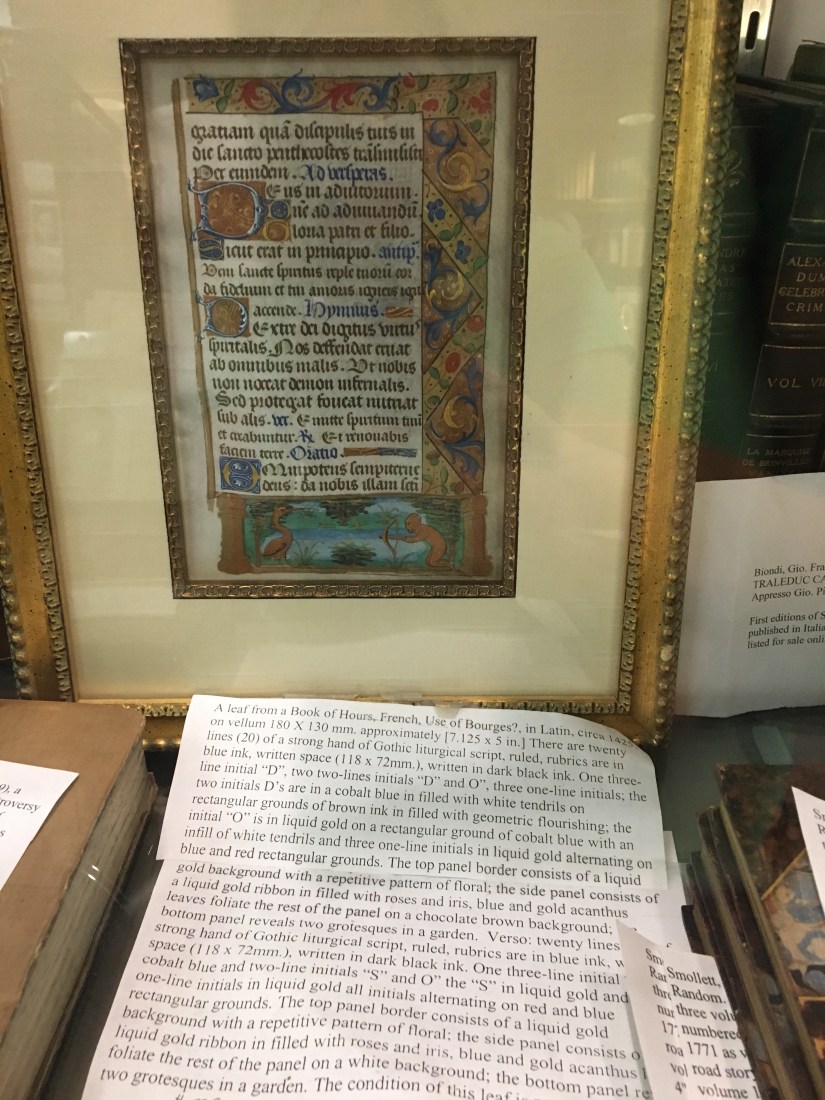 gratiam quã discipulis tuis in
die sancto penthecostes trãsmisisti
Per eumdem. Ad vesperas.
Deus in adiutorium.
Dñe ad adiuuandũ
Gloria patri et filio.
Sicut erat in principio. antiph.
Veni sancte spiritus reple tuorũ cor
da fidelium et tui amoris ignem
accende. Hymnus.
Dextre dei digitus virtus
spiritalis. Nos deffendat eruat
ab omnibus malis. Ut nobis
non noceat demon infernalis.
Sed protegat foueat nutriat
sub alis. Emitte spiritum tuũ
et creabuntur. Et renouabis
faciem terre. Oratio
Omnipotens sempiterne
deus: da nobis illam scti
ALEXA
DUM
CELEBR
CRIM
VOL VII
LA MARQUISE
DE BRINVILLIERS
Biondi, Gio. Fra
TRALEDUC CA
Appresso Gio. Pi
First editions of S
published in Italia
listed for sale onli
A leaf from a Book of Hours, French, Use of Bourges?, in Latin, circa 1425
on vellum 180 X 130 mm. approximately [7.125 x 5 in.] There are twenty
lines (20) of a strong hand of Gothic liturgical script, ruled, rubrics are in
blue ink, written space (118 x 72mm.), written in dark black ink. One three-
line initial “D”, two two-lines initials “D” and O”, three one-line initials; the
two initials D’s are in a cobalt blue in filled with white tendrils on
rectangular grounds of brown ink in filled with geometric flourishing; the
initial “O” is in liquid gold on a rectangular ground of cobalt blue with an
infill of white tendrils and three one-line initials in liquid gold alternating on
blue and red rectangular grounds. The top panel border consists of a liquid
gold background with a repetitive pattern of floral; the side panel consists of
a liquid gold ribbon in filled with roses and iris, blue and gold acanthus
leaves foliate the rest of the panel on a chocolate brown background;
bottom panel reveals two grotesques in a garden. Verso: twenty lines
strong hand of Gothic liturgical script, ruled, rubrics are in blue ink, w
space (118 x 72mm.), written in dark black ink. One three-line initial
cobalt blue and two-line initials “S” and O” the “S” in liquid gold and
one-line initials in liquid gold all initials alternating on red and blue
rectangular grounds. The top panel border consists of a liquid gold
background with a repetitive pattern of floral; the side panel consists o
liquid gold ribbon in filled with roses and iris, blue and gold acanthus l
foliate the rest of the panel on a white background; the bottom panel re
two grotesques in a garden. The condition of this leaf is
9), a
roversy
Smollett,
Random.
three volu
numbered
1771 as v
road stor
volume 1